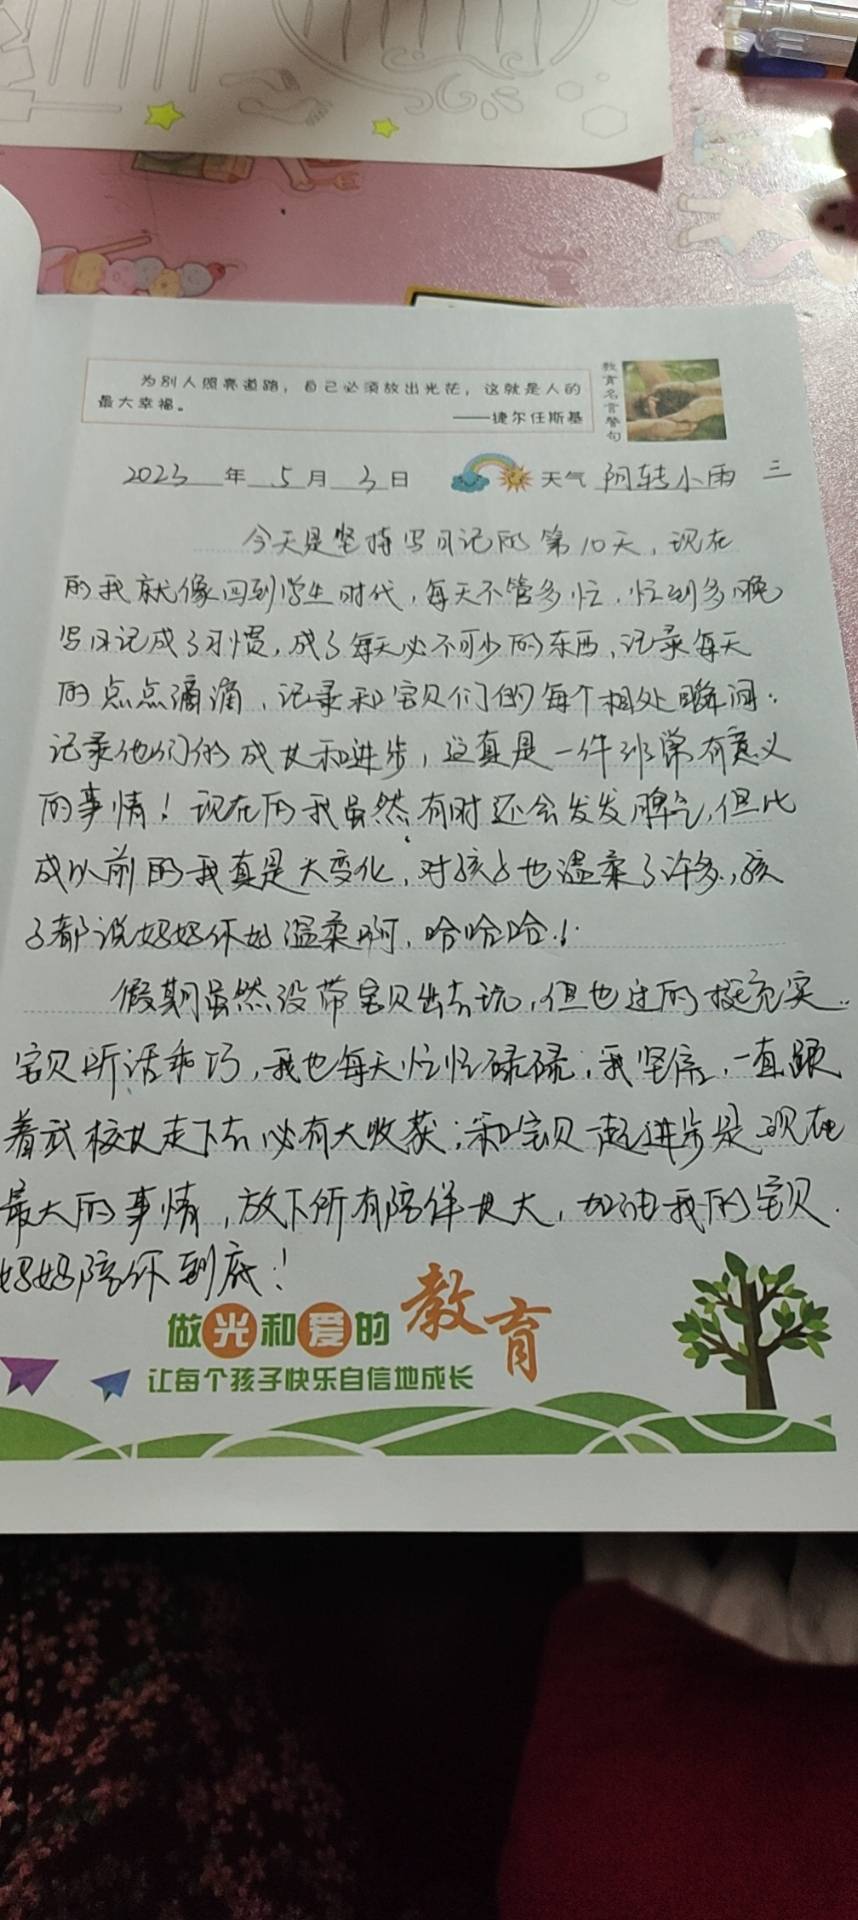 为别人照亮道路，自己必须放出光芒，这就是人的
最大幸福。
——捷尔任斯基
教育名言警句
2023年5月3日 天气 阴转小雨 三
今天是坚持写日记的第10天，现在
的我就像回到学生时代，每天不管多忙，忙到多晚
写日记成了习惯，成了每天必不可少的东西，记录每天
的点点滴滴，记录和宝贝们的每个相处瞬间；
记录他们的成长和进步，这真是一件非常有意义
的事情！现在的我虽然有时还会发发脾气，但比
成以前的我真是大变化，对孩子也温柔了许多，孩
子都说妈妈你好温柔啊，哈哈哈！
假期虽然没带宝贝出去玩，但也过的挺充实。
宝贝听话乖巧，我也每天忙忙碌碌；我坚信，一直跟
着武校长走下去必有大收获；和宝贝一起进步是现在
最大的事情，放下所有陪伴长大，加油我的宝贝
妈妈陪你到底！
做光和爱的教育
让每个孩子快乐自信地成长